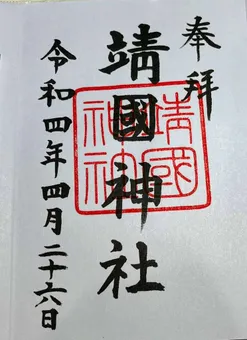 奉拝
靖國神社
靖國
神社
令和四年四月二十六日